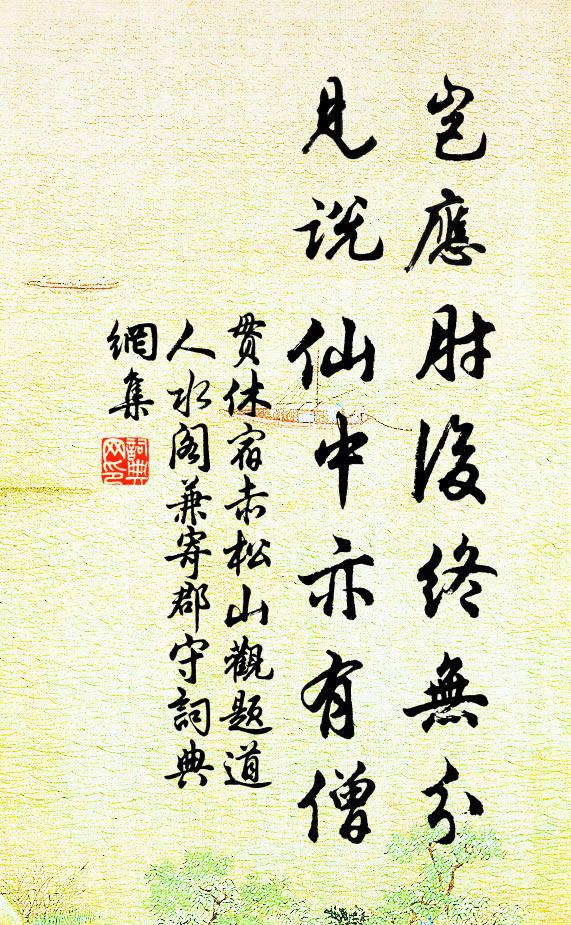 豈應肘後終無分
見說仙中亦有僧
貫休宿赤松山觀題道
人水阁兼寄郡守詞典
網集
詞典
网印